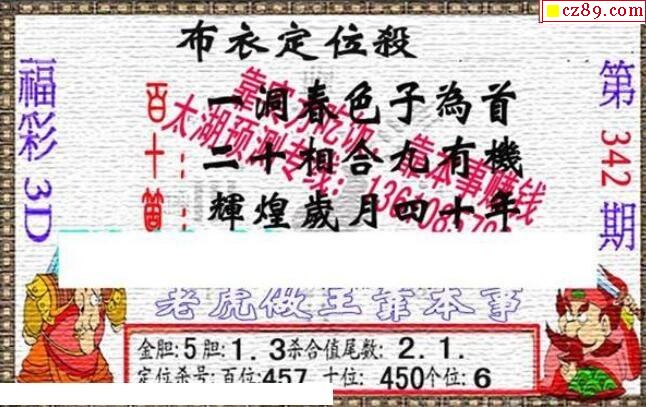 cz89.com
布衣定位殺
福彩3D
第342期
百十箇
一洞春色子為首
二十相合九有機
輝煌歲月四十年
太湖预测专线：
靠本事赚钱
老虎做王靠本事
金胆:5胆:1.3杀合值尾数:2.1.
定位杀号:百位:457 十位:450个位:6